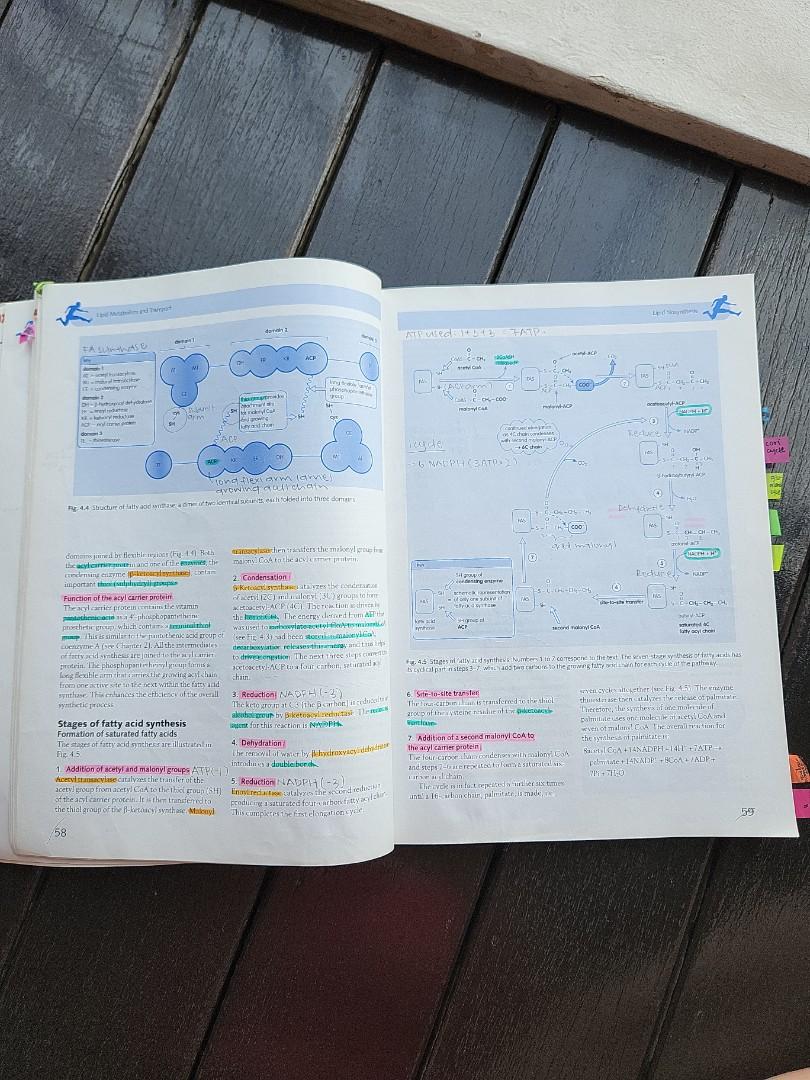 Lipid Metabolism and Transport
FA synthase
domain 1
domain 2
domain 3
key
domain 1
AT = acetyl transacylase
MT = malonyl transacylase
CE = condensing enzyme
domain 2
ER = enoyl reductase
KR = ketoacyl reductase
ACP = acyl carrier protein
domain 3
AT
MT
CE
ER
KR
ACP
cys
SH
ACP
ACP
Fig. 4.4 Structure of fatty acid synthase, a dimer of two identical subunits, each folded into three domains.
domains joined by flexible regions (Fig. 4.4). Both
the acyl carrier protein and one of the enzymes, the
condensing enzyme (β-ketoacyl synthase), contain
important thiol (sulphydryl) groups.
Function of the acyl carrier protein
The acyl carrier protein contains the vitamin
pantothenic acid as a 4'-phosphopantetheine
prosthetic group, which contains a terminal thiol
group. This is similar to the pantothenic acid group of
coenzyme A (see Chapter 2). All the intermediates
of fatty acid synthesis are joined to the acyl carrier
protein. The phosphopantetheinyl group forms a
long flexible arm that carries the growing acyl chain
from one active site to the next within the fatty acid
synthase. This enhances the efficiency of the overall
synthetic process.
Stages of fatty acid synthesis
Formation of saturated fatty acids
The stages of fatty acid synthesis are illustrated in
Fig. 4.5.
1. Addition of acetyl and malonyl groups
Acetyl transacylase catalyzes the transfer of the
acetyl group from acetyl CoA to the thiol group (SH)
of the acyl carrier protein. It is then transferred to
the thiol group of the β-ketoacyl synthase. Malonyl
58
transacylase then transfers the malonyl group from
malonyl CoA to the acyl carrier protein.
2. Condensation
β-Ketoacyl synthase catalyzes the condensation
of acetyl (2C) and malonyl (3C) groups to form
acetoacetyl-ACP (4C). The reaction is driven by
the loss of CO₂. The energy derived from ATP that
was used to carboxylate acetyl CoA to malonyl CoA
(see Fig. 4.3) had been stored in malonyl CoA,
decarboxylation releases this energy and thus helps
to drive elongation. The next three steps convert
acetoacetyl-ACP to a four-carbon, saturated acyl
chain.
3. Reduction NADPH (-3)
The keto group at C3 (the β carbon) is reduced to an
alcohol group by β-ketoacyl reductase. The
agent for this reaction is NADPH.
4. Dehydration
The removal of water by β-hydroxyacyl dehydratase
introduces a double bond.
5. Reduction NADPH (-3)
Enoyl reductase catalyzes the second reduction
producing a saturated four-carbon fatty acyl chain.
This completes the first elongation cycle.
Lipid Biosynthesis
ATP used
= 7ATP
acetyl CoA
malonyl CoA
acetyl-ACP
malonyl-ACP
COO⁻
CO₂
FAS
acetoacetyl-ACP
NADPH + H⁺
NADP⁺
Reduce
H₂O
Dehydrate
NADPH + H⁺
NADP⁺
Reduce
saturated 4C
fatty acyl chain
site-to-site transfer
second malonyl CoA
continued elongation
as 4C chain condenses
with second malonyl-ACP
→ 6C chain
key
SH group of
condensing enzyme
schematic representation
of only one subunit of
fatty acid synthase
SH group of
ACP
fatty acid
synthase
Fig. 4.5 Stages of fatty acid synthesis. Numbers 1 to 7 correspond to the text. The seven-stage synthesis of fatty acids has
its cyclical part in steps 3–7, which add two carbons to the growing fatty acid chain for each cycle of the pathway.
6. Site-to-site transfer
The four-carbon chain is transferred to the thiol
group of the cysteine residue of the β-ketoacyl
synthase.
7. Addition of a second malonyl CoA to
the acyl carrier protein
The four-carbon chain condenses with malonyl CoA
and steps 2–6 are repeated to form a saturated six-
carbon acyl chain.
The cycle is in fact repeated a further six times
until a 16-carbon chain, palmitate, is made, i.e.
seven cycles altogether (see Fig. 4.5). The enzyme
thioesterase then catalyzes the release of palmitate.
Therefore, the synthesis of one molecule of
palmitate uses one molecule of acetyl CoA and
seven of malonyl CoA. The overall reaction for
the synthesis of palmitate is:
8acetyl CoA + 14NADPH + 14H⁺ + 7ATP →
palmitate + 14NADP⁺ + 8CoA + 7ADP +
7Pi + 7H₂O
59
cori
cycle